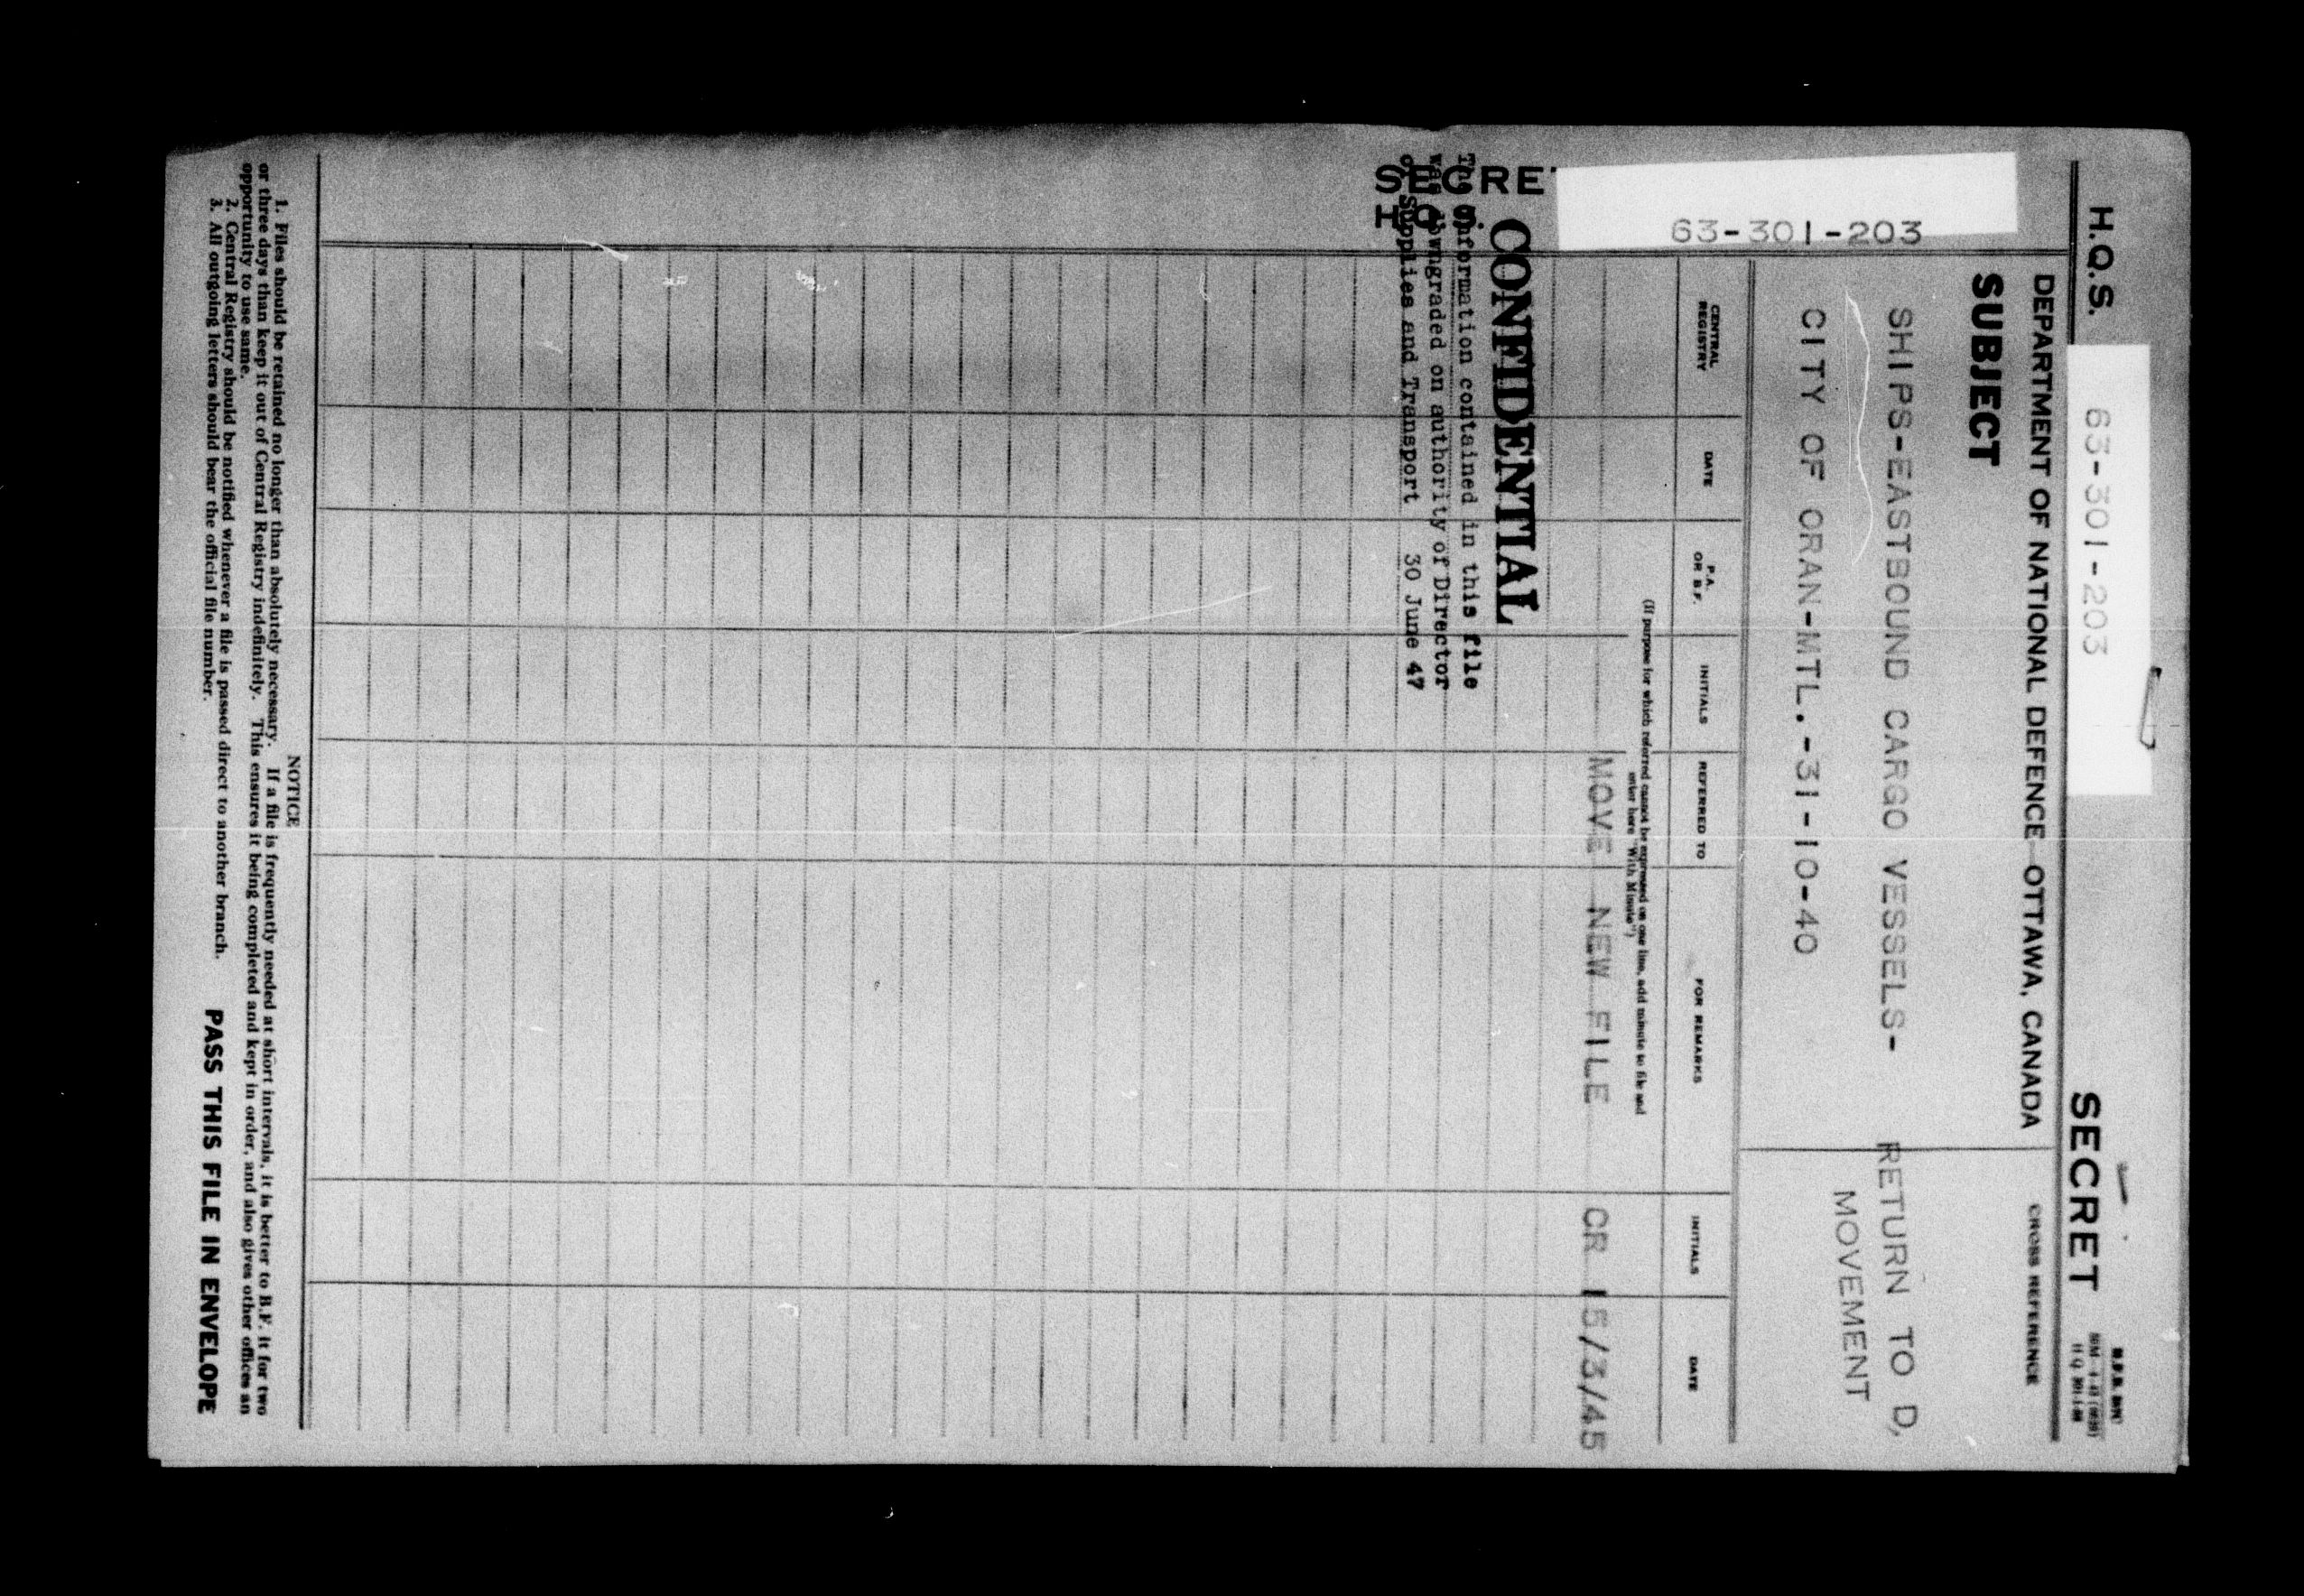 H.Q.S. 63-301-203 SECRET
DEPARTMENT OF NATIONAL DEFENCE OTTAWA, CANADA
CROSS REFERENCE
SUBJECT
SHIPS-EASTBOUND CARGO VESSELS-
CITY OF ORAN-MTL.-31-10-40
RETURN TO D,
MOVEMENT
63-301-203
CENTRAL REGISTRY
DATE
P.A. OR B.F.
INITIALS
REFERRED TO
FOR REMARKS
INITIALS
DATE
(If purpose for which referred cannot be expressed on one line, add minute to file and
enter here "With Minute")
MOVE NEW FILE CR 15/3/45
SECRE
CONFIDENTIAL
The information contained in this file
was downgraded on authority of Director
of Supplies and Transport 30 June 47
NOTICE
1. Files should be retained no longer than absolutely necessary. If a file is frequently needed at short intervals, it is better to B.F. it for two
or three days than keep it out of Central Registry indefinitely. This ensures it being completed and kept in order, and also gives other offices an
opportunity to use same.
2. Central Registry should be notified whenever a file is passed direct to another branch.
3. All outgoing letters should bear the official file number.
PASS THIS FILE IN ENVELOPE